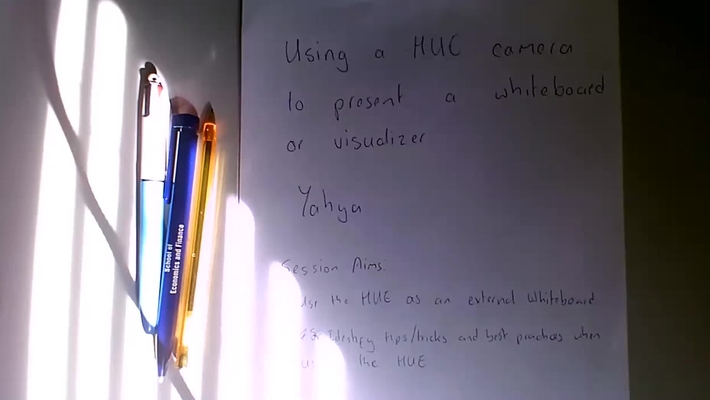 Using a HUE camera
to present a whiteboard
or visualizer
Yahya
Session Aims:
Use the HUE as an external whiteboard
Identify tips/tricks and best practices when
the HUE
School of
Economics and Finance